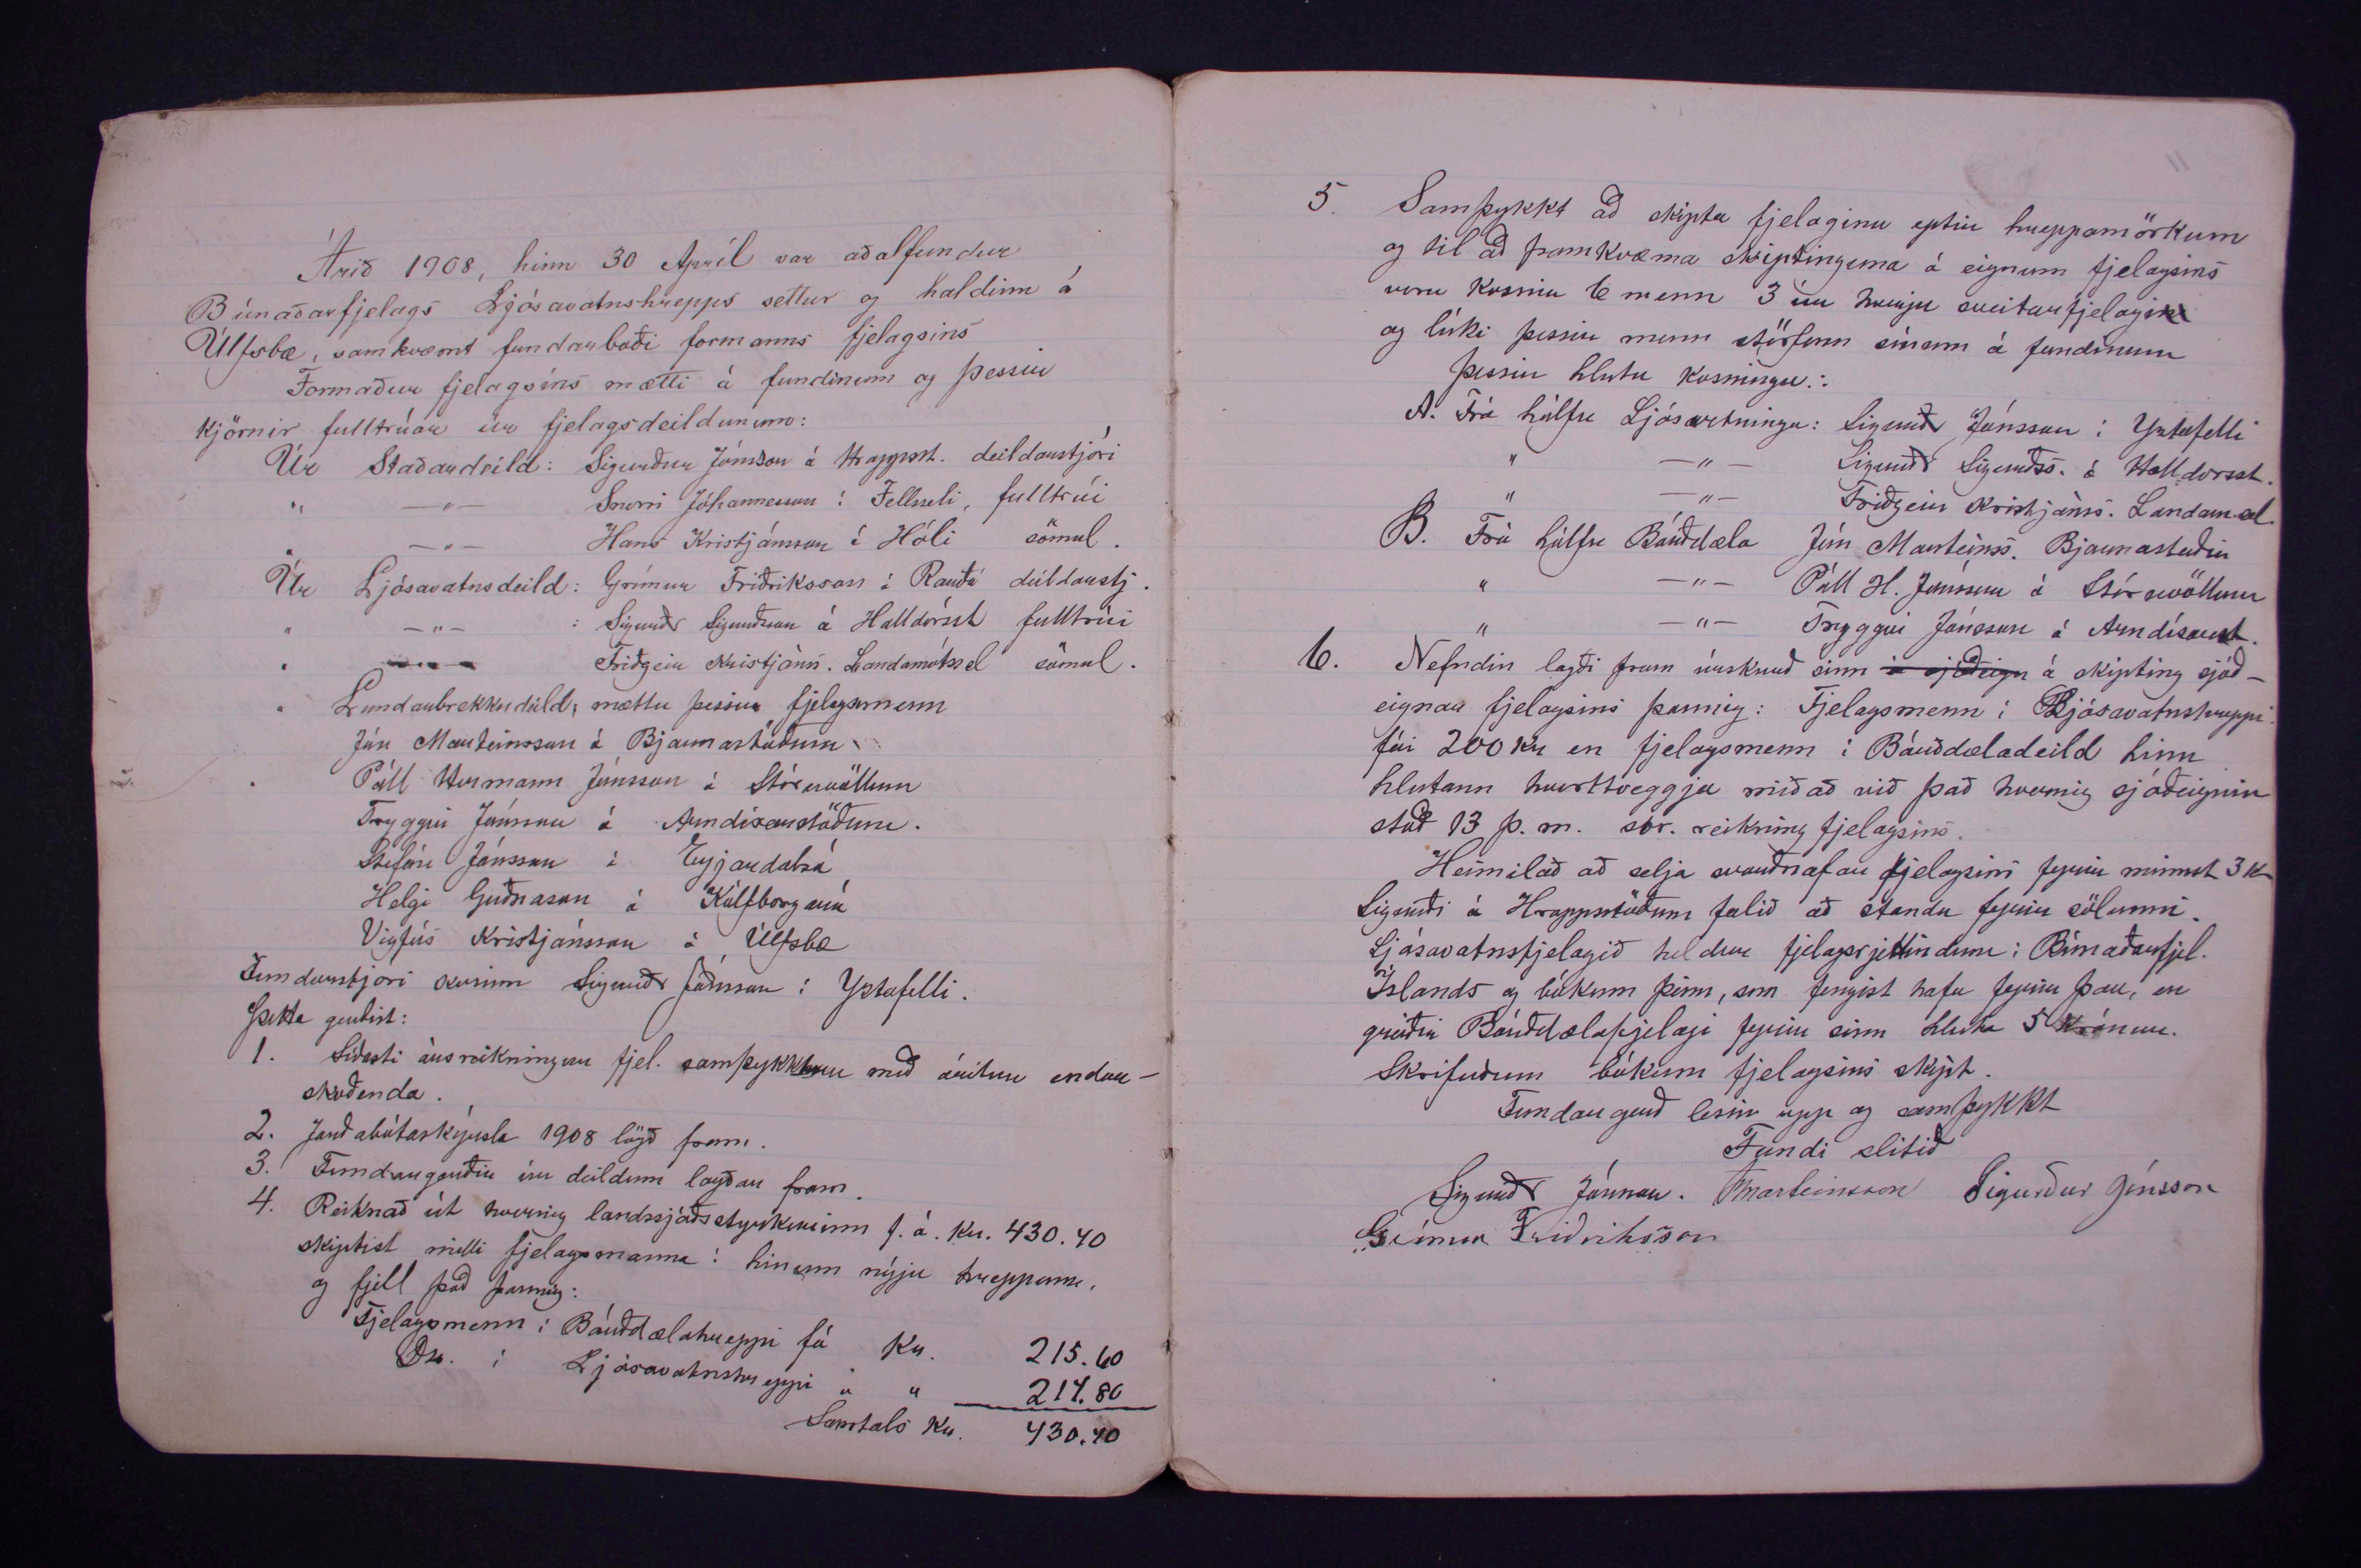 Árið 1908, hinn 30 Apríl var aðalfundur
Búnaðarfjelags Ljósavatnshrepps settur og haldinn á
Úlfsbæ, samkvæmt fundarboði formanns fjelagsins
Formaður fjelagsins mætti á fundinum og þessir
kjörnir fulltrúar úr fjelagsdeildunum:
Úr Staðardeild: Sigurður Jónsson á Hrappsst. deildarstjóri
" —"— Snorri Jóhannesson í Fellseli, fulltrúi
" —"— Hans Kristjánsson á Hóli sömul.
Úr Ljósavatnsdeild: Grímur Friðriksson í Rauðá deildarstj.
" —"— : Sigurðr Sigurðsson á Halldórsst fulltrúi
" —"— Friðgeir Kristjánss. Landamótssel sömul.
" Lundarbrekkudeild, mættu þessir fjelagsmenn
Jón Marteinsson á Bjarnastöðum
Páll Hermann Jónsson á Stóruvöllum
Tryggvi Jónsson á Arndísarstöðum.
Stefán Jónsson á Eyjardalsá
Helgi Guðnason á Kálfborgará
Vigfús Kristjánsson á Úlfsbæ
Fundarstjóri kosinn Sigurðr Jónsson í Yztafelli.
Þetta gerðist:
1. Síðasti ársreikningur fjel. samþykktur með áritun endur-
skoðenda.
2. Jarðabótaskýrsla 1908 lögð fram.
3. Fundargerðir úr deildum lagðar fram.
4. Reiknað út hvernig landssjóðsstyrkurinn f. á. Kr. 430.40
skiptist milli fjelagsmanna í hinum nýju hreppum,
og fjell það þannig:
Fjelagsmenn í Bárðdælahreppi fá Kr. 215.60
Do. í Ljósavatnshreppi " " 214.80
Samtals Kr. 430.40
11
5. Samþykkt að skipta fjelaginu eptir hreppamörkum
og til að framkvæma skiptinguna á eignum fjelagsins
voru kosnir 6 menn 3 úr hverju sveitarfjelagi
og lúki þessir menn störfum sínum á fundinum
Þessir hlutu kosningu:
A. Frá hálfu Ljósvetninga: Sigurðr Jónsson í Yztafelli
" —"— Sigurðr Sigurðss. á Halldorsst.
" —"— Friðgeir Kristjánss. Landam.sel
B. Frá hálfu Bárðdæla Jón Marteinss. Bjarnastöðum
" —"— Páll H. Jónsson á Stóruvöllum
" —"— Tryggvi Jónsson á Arndísarst.
6. Nefndin lagði fram úrskurð sinn á skipting sjóð-
eignar fjelagsins þannig: Fjelagsmenn í Ljósavatnshreppi
fái 200 kr en fjelagsmenn í Bárðdæladeild hinn
hlutann hvorttveggja miðað við það hvernig sjóðeignin
stóð 13 þ. m. sbr. reikning fjelagsins.
Heimilað að selja fjelagsins fyrir minnst 3 kr
Sigurði á Hrappstöðum falið að standa fyrir sölunni.
Ljósavatnsfjelagið heldur fjelagsrjettindum í Búnaðarfjel.
Íslands og bókum þeim, sem fengist hafa fyrir þau, en
greiðir Bárðdælafjelagi fyrir sinn hluta 5 Krónur.
Skrifuðum bókum fjelagsins skipt.
Fundargerð lesin upp og samþykkt
Fundi slitið
Sigurðr Jónsson. JMarteinsson Sigurður Jónsson
Grímur Friðriksson